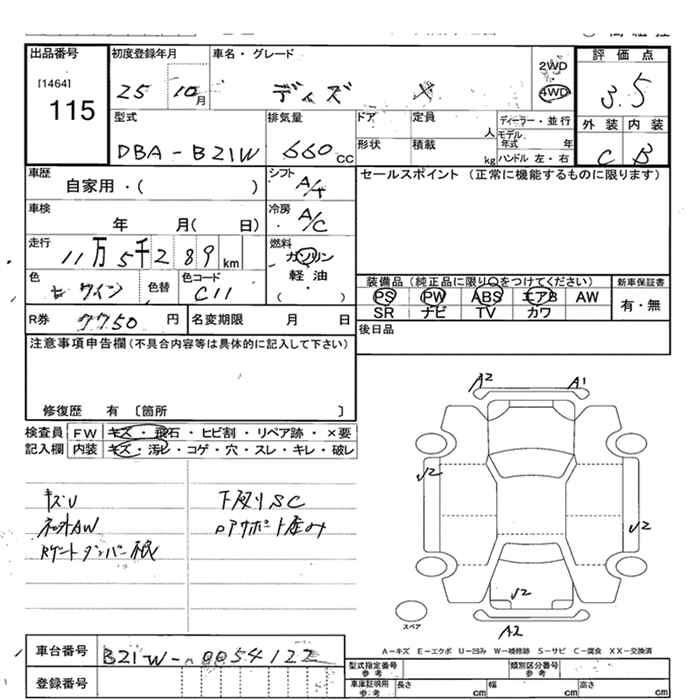 出品番号 初度登録年月 車名・グレード 評価点
[1464] 2WD
115 25 10月 ディズ X 4WD 3.5
型式 排気量 ドア 定員 人 ディーラー・並行 外装 内装
モデル年式 年
DBA-B21W 660cc 形状 積載 kg ハンドル 左・右 C B
車歴 シフト セールスポイント (正常に機能するものに限ります)
自家用・( ) A/T
車検 冷房
年 月( 日) A/C
走行 燃料
11万5千289km ガソリン
軽油
( ・ )
色 色替 色コード 装備品 (純正品に限り○をつけてください) 新車保証書
ワイン C11 PS PW ABS エアB AW 有・無
SR ナビ TV カワ
R券 7750円 名変期限 月 日 後日品
注意事項申告欄(不具合内容等は具体的に記入して下さい)
修復歴 有 〔箇所 〕
A2 A1
検査員 FW キズ・飛石・ヒビ割・リペア跡・×要
記入欄 内装 キズ・汚レ・コゲ・穴・スレ・キレ・破レ
キズU 下廻りSC
社外AW
U2
U2
U2
スペア
A2
A-キズ E-エクボ U-凹み W-補修跡 S-サビ C-腐食 XX-交換済
車台番号 B21W-0054122
登録番号
型式指定番号 参考 類別区分番号 参考
車庫証明用 参考 長さ cm 幅 cm 高さ cm